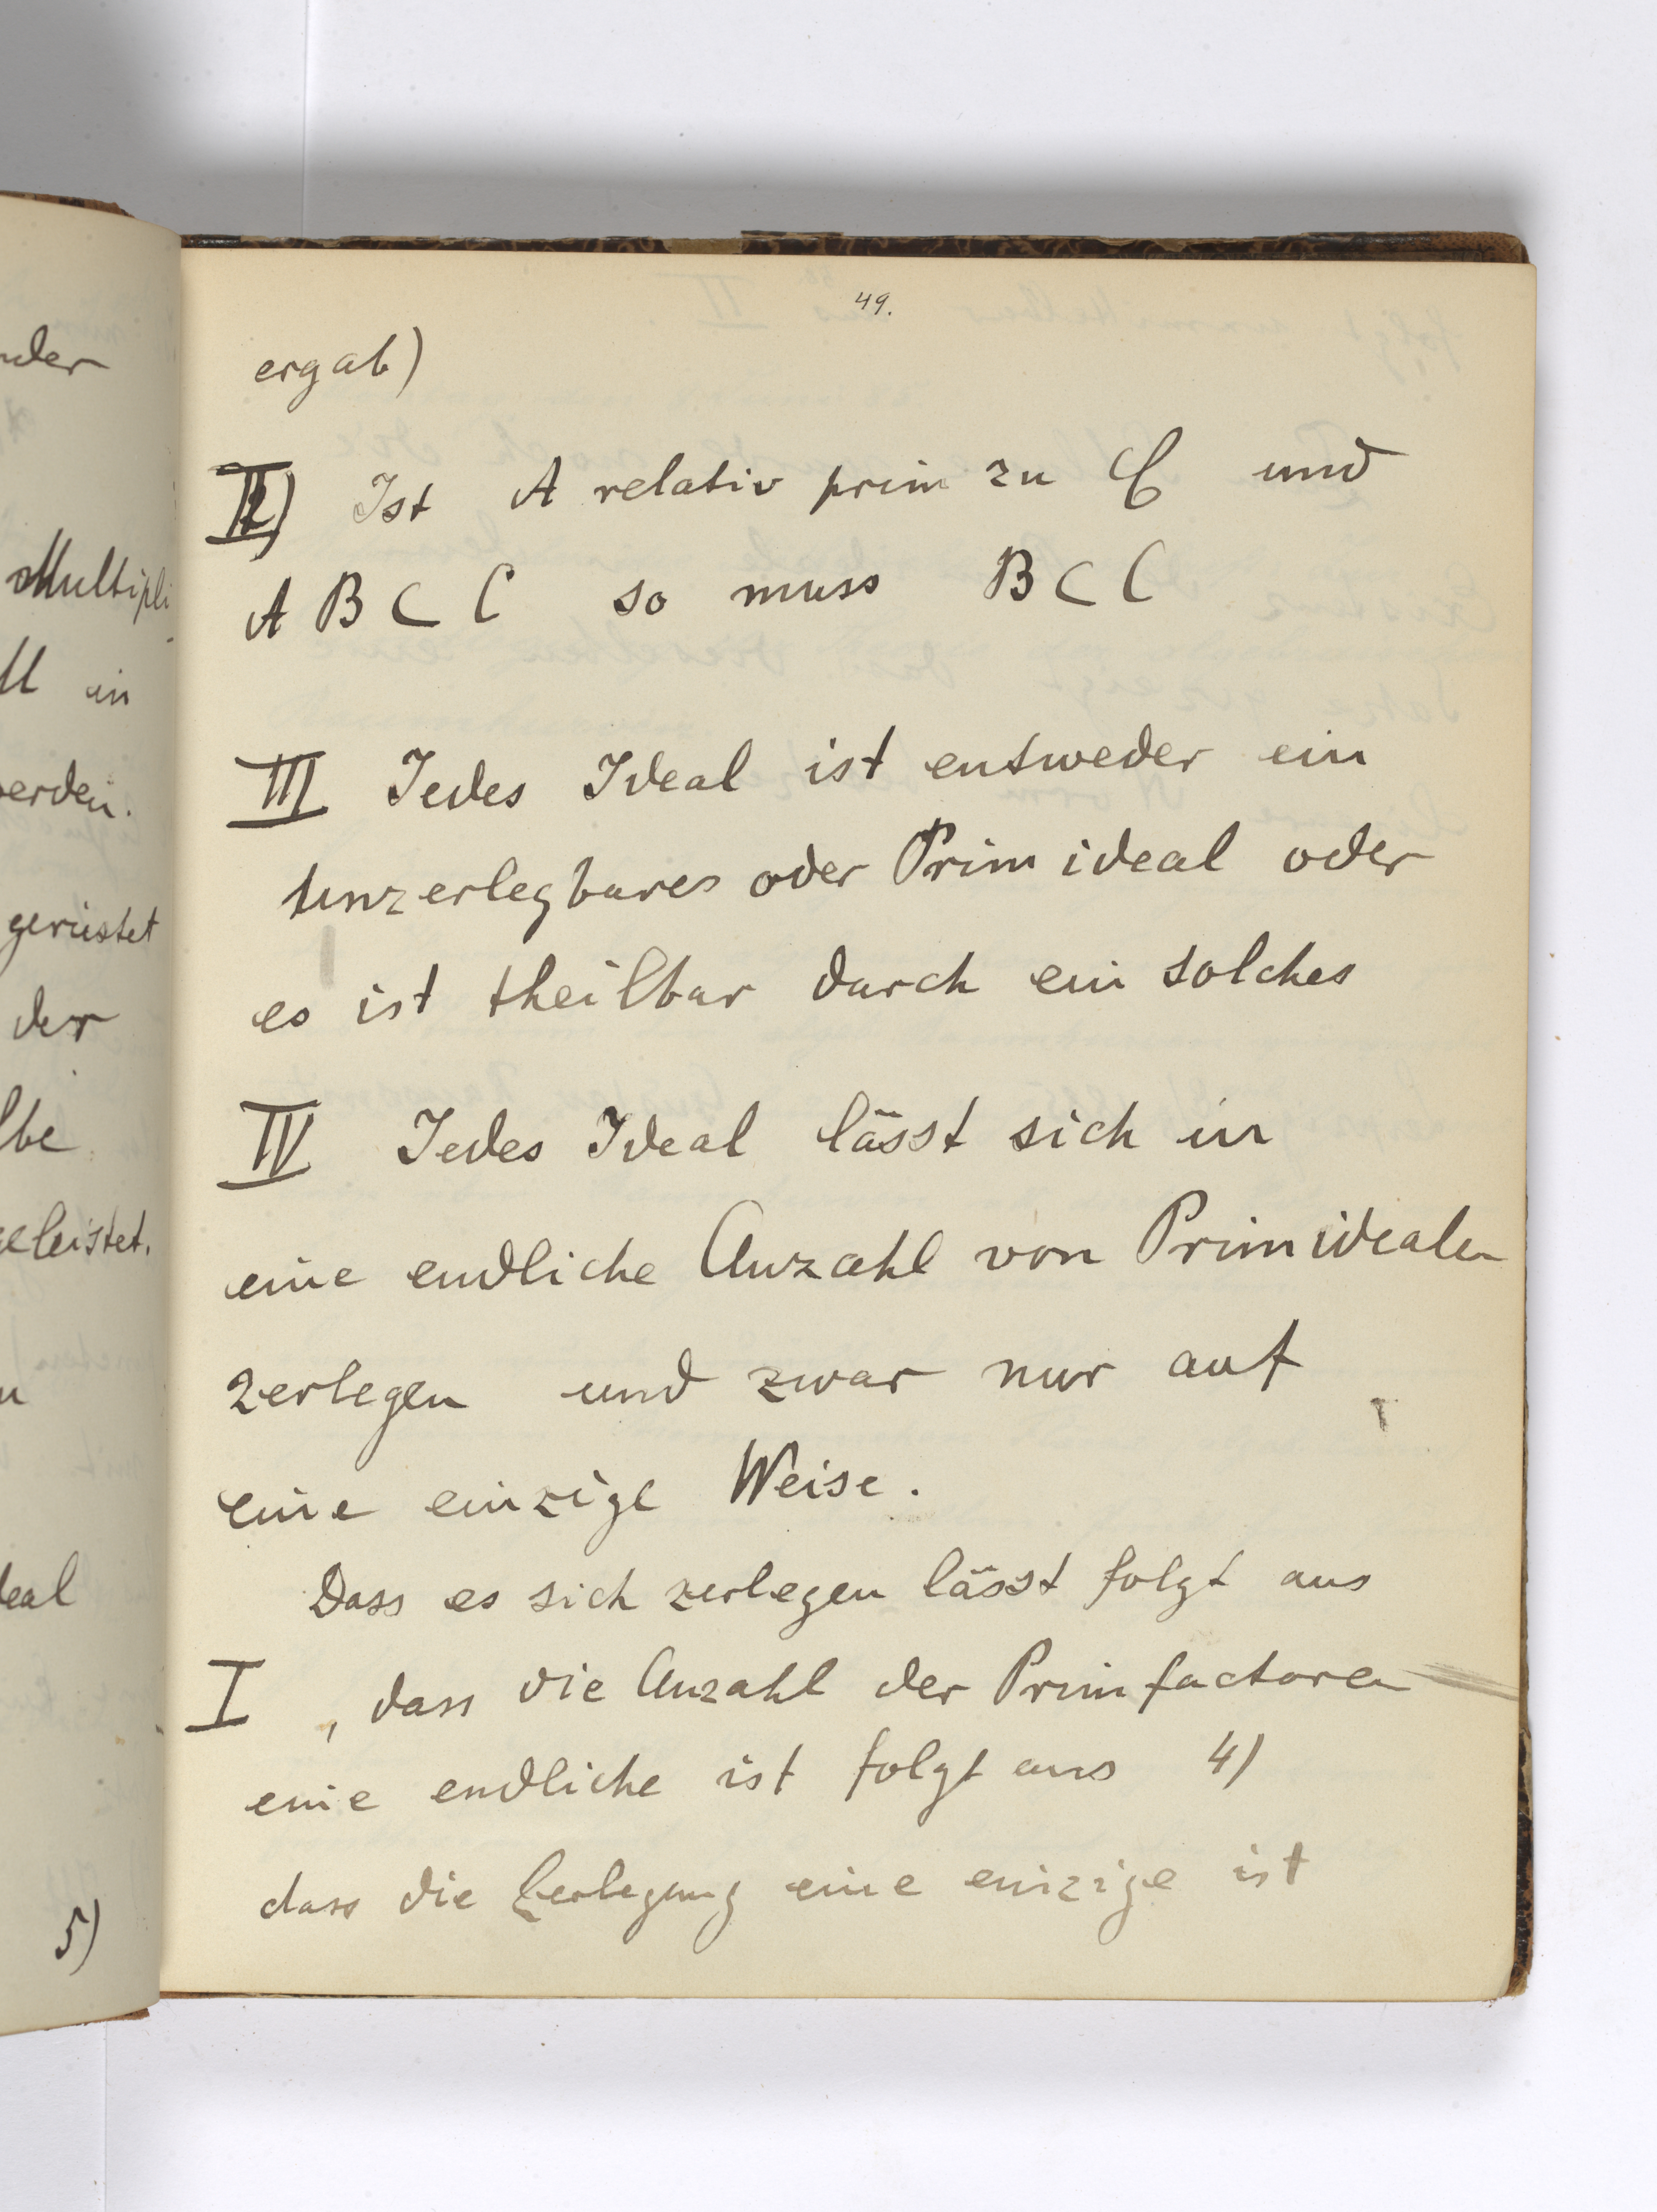 nder
Multipli
M in
werden.
gerüstet
der
lbe
geleistet.
deal
5)
49.
ergab)
II) Ist A relativ prim zu C und
A B ⊂ C so muss B ⊂ C
III Jedes Ideal ist entweder ein
unzerlegbares oder Primideal oder
es ist theilbar durch ein solches
IV Jedes Ideal lässt sich in
eine endliche Anzahl von Primidealen
zerlegen und zwar nur auf
eine einzige Weise.
Dass es sich zerlegen lässt folgt aus
I , dass die Anzahl der Primfactoren
eine endliche ist folgt aus 4)
dass die Zerlegung eine einzige ist